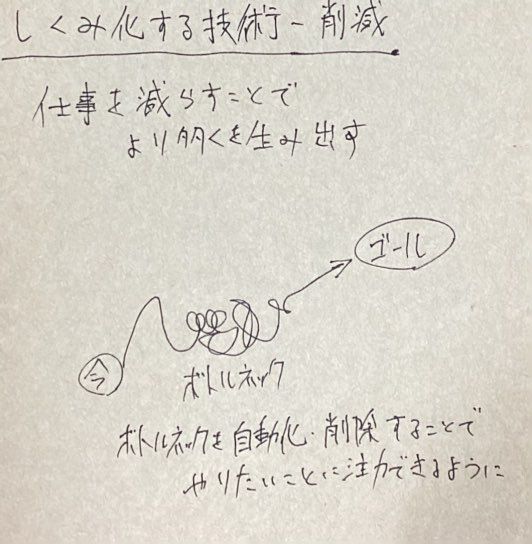 しくみ化する技術ー削減
仕事を減らすことで
より多くを生み出す
ゴール
今
ボトルネック
ボトルネックを自動化・削除することで
やりたいことに注力できるように